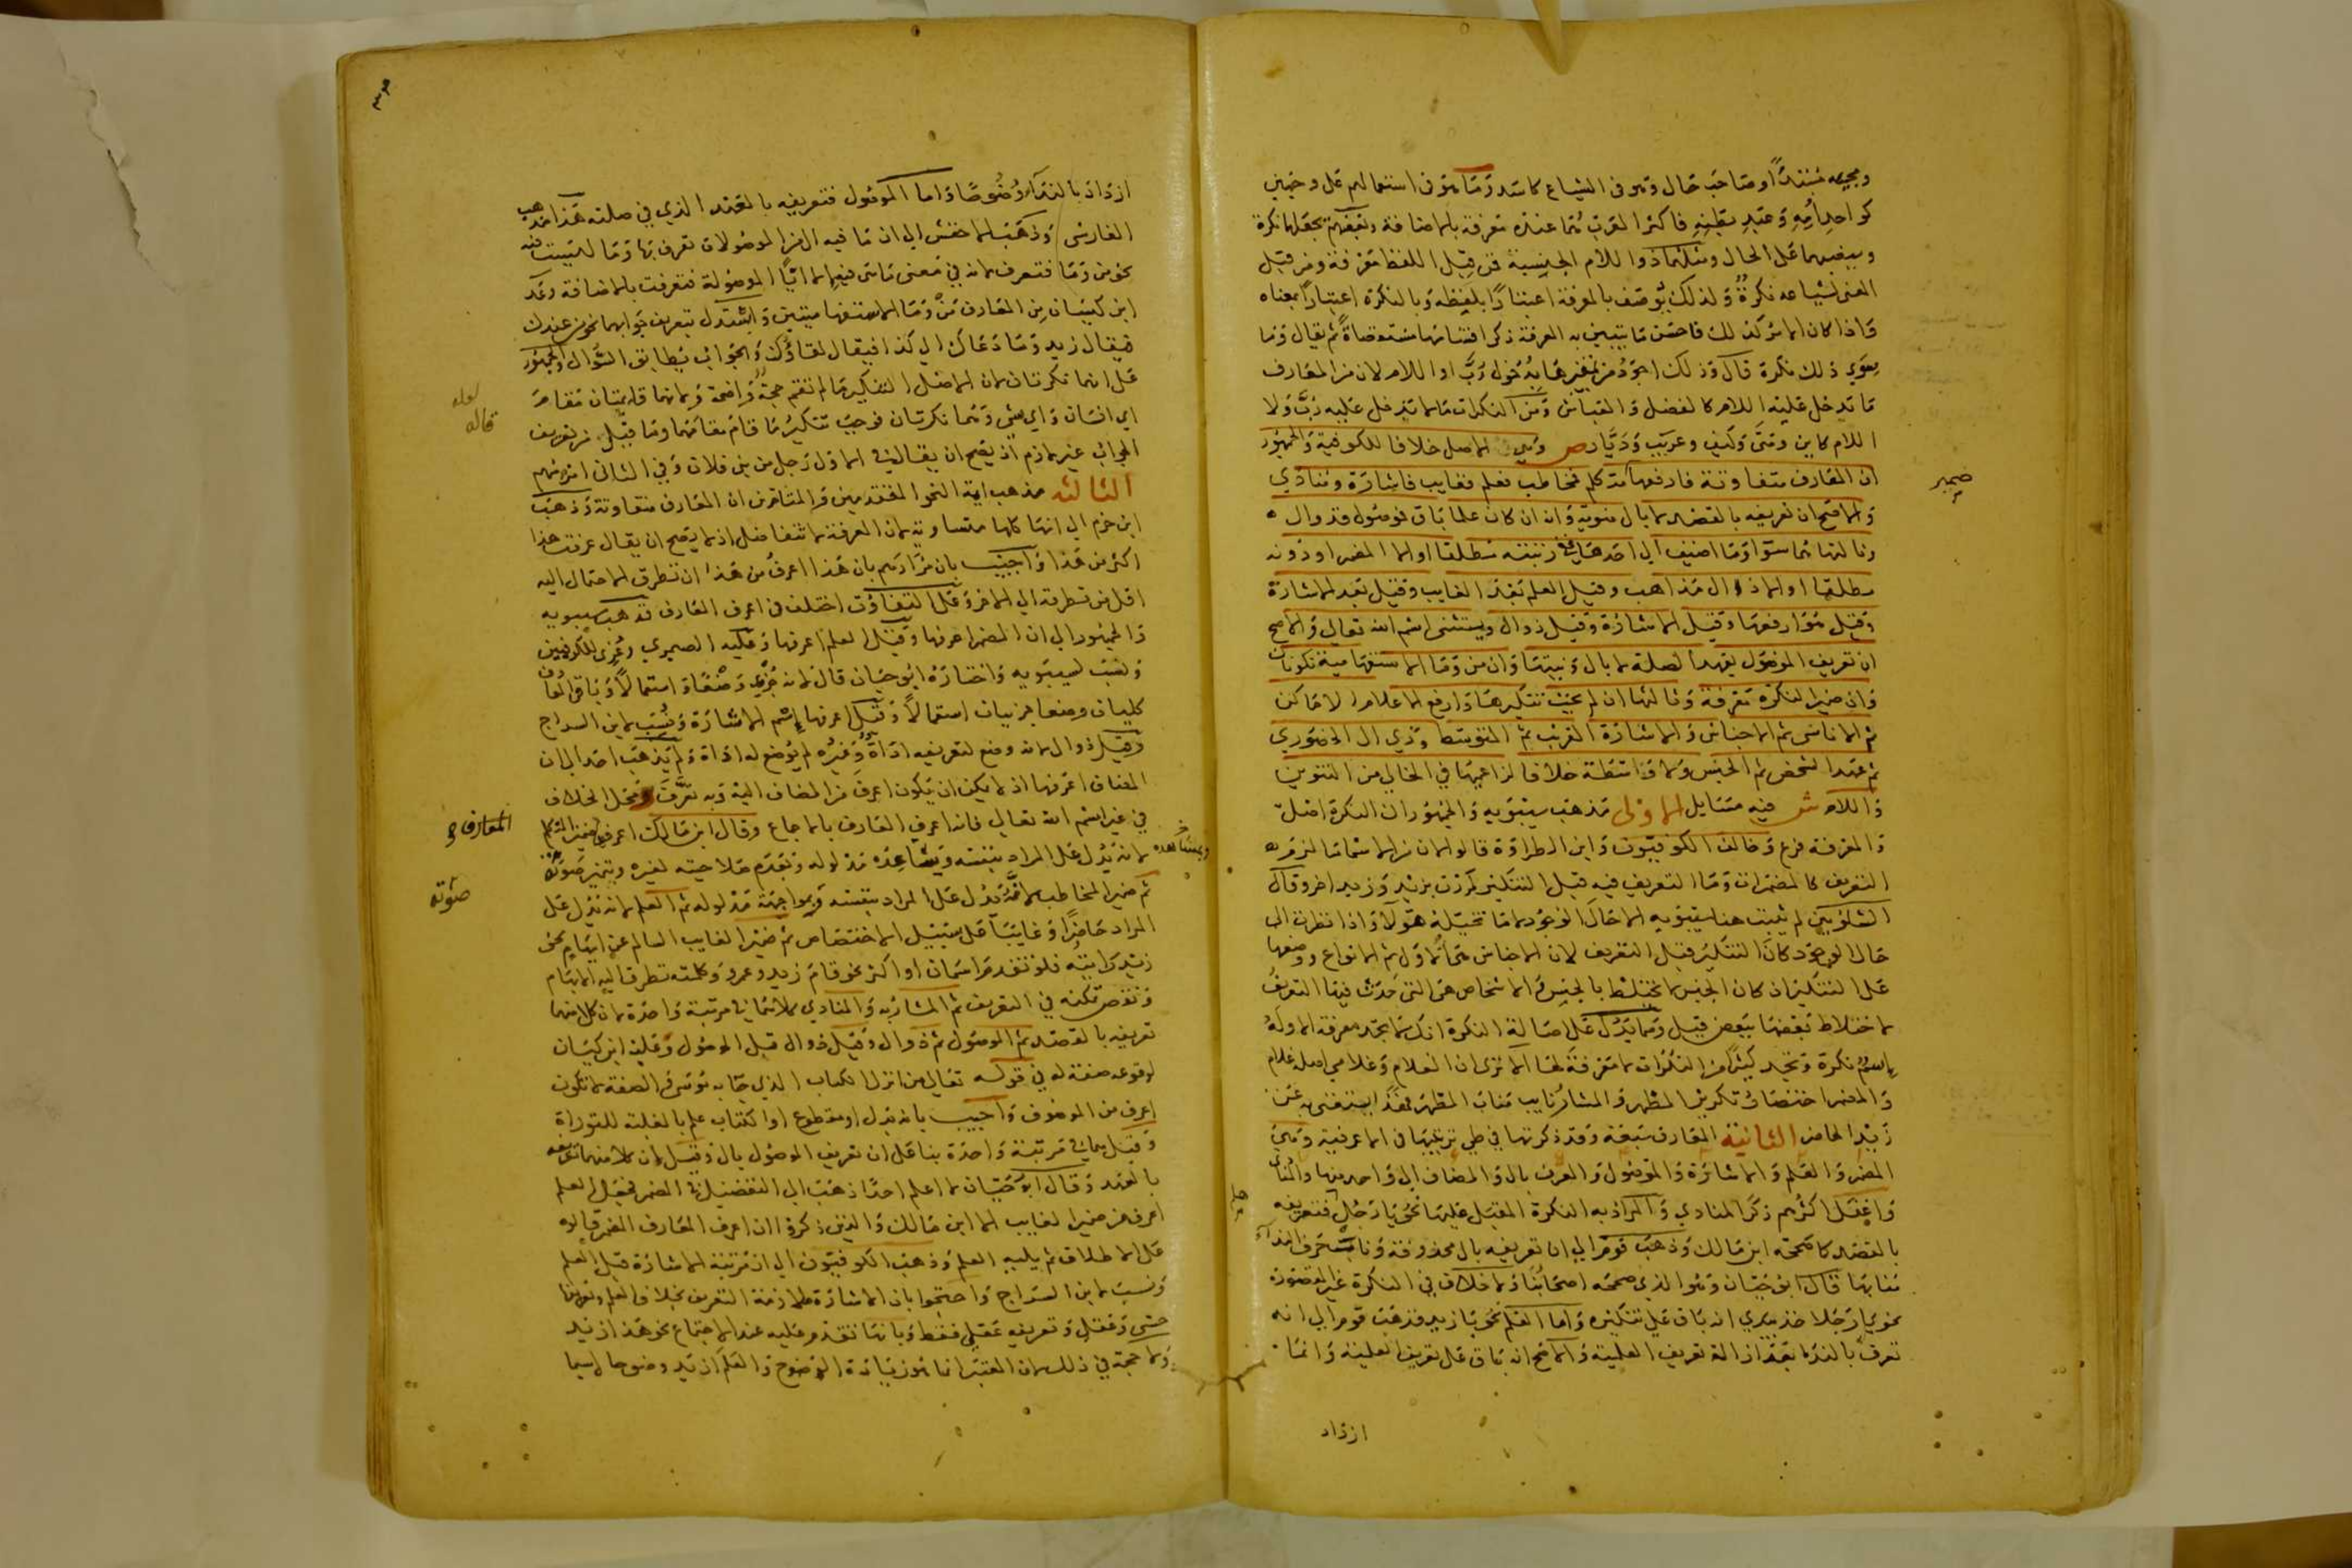 ومجيئه مبتدأ وصاحب حال وهو في الشياع كاسد وما هو في استعمالهم على وجهين
كواحد أمه وعبد بطنه فاكثر العرب هما عنده معرفة بالاضافة وبعضهم يجعلهما نكرة
وينصبهما على الحال ومثلهما ذو اللام الجنسية فمن قبل اللفظ معرفة ومن قبل
المعنى لشياعه نكرة ولذلك يوصف بالمعرفة اعتبارا بلفظه وبالنكرة اعتبارا بمعناه
واذا كان الامر كذلك فاحسن ما يتبين به المعرفة ذكر اقسامها مستوفاة ثم يقال وما
سوى ذلك نكرة قال وذلك اجود من تمييزها بدخول رب او اللام لان من المعارف
ما تدخل عليه اللام كالفضل والعباس ومن النكرات ما لا تدخل عليه رب ولا
اللام كاين ومتى وكيف وعريب وديار ص وهي الاصل خلافا للكوفية والجمهور
ان المعارف متفاوتة فارفعها متكلم فمخاطب فعلم فغايب فاشارة ومنادي
والاصح ان تعريفه بالقصد لا بال منوية وانه ان كان علما باق فموصول فذو ال
وثالثها هما سوا وما اضيف الى احدها في رتبته مطلقا او الا المضمر او دونه
مطلقا او الا ذو ال مذاهب وقيل العلم بعد الغايب وقيل بعد الاشارة
وقيل هو ارفعها وقيل الاشارة وقيل ذو ال ويستثنى اسم الله تعالى والاصح
ان تعريف الموصول بعهد الصلة لا بال ونيتها وان من وما الاستفهامية نكرتان
وان ضمير النكرة معرفة وثالثها ان لم يجب تنكيرها وارفع الاعلام الاماكن
ثم الاناسي ثم الاجناس والاشارة القريب ثم المتوسط وذي ال الحضوري
ثم عهد الشخص ثم الجنس ولا واسطة خلافا لزاعمها في الخالي من التنوين
واللام ش فيه مسايل الاولى مذهب سيبويه والجمهور ان النكرة اصل
والمعرفة فرع وخالف الكوفيون وابن الطراوة قالوا لان من الاسما ما لزمه
التعريف كالمضمرات وما التعريف فيه قبل التنكير كمررت بزيد وزيد اخر وقال
الشلوبين لم يثبت هنا سيبويه الا حال الوجود لا ما تخيله هؤلا واذا نظرت الى
حال الوجود كان التنكير قبل التعريف لان الاجناس هي الاول ثم الانواع ووضعها
على التنكير اذ كان الجنس لا يختلط بالجنس والاشخاص هي التي حدث فيها التعريف
لاختلاط بعضها ببعض قيل ومما يدل على اصالة النكرة انك لا تجد معرفة الا وله
اسم نكرة وتجد كثيرا من النكرات لا معرفة لها الا ترى ان الغلام وغلامي اصله غلام
والمضمر اختصار تكرير المظهر والمشار نايب مناب المظهر فهذا يستغنى به عن
زيد الحاضر الثانية المعارف سبعة وقد ذكرتها في طي ترتيبها في الاعرفية وهي
المضمر والعلم والاشارة والموصول والمعرف بال والمضاف الى واحد منها والمنادى
واغفل اكثرهم ذكر المنادي والمراد به النكرة المقبل عليها نحو يا رجل فتعريفه
بالقصد كما صححه ابن مالك وذهب قوم الى ان تعريفه بال محذوفة وناب حرف الندا
منابها قال ابو حيان وهو الذي صححه اصحابنا ولا خلاف في النكرة غير المقصودة
نحو يا رجلا خذ بيدي انه باق على تنكيره واما العلم نحو يا زيد فذهب قوم الى انه
تعرف بالندا بعد ازالة تعريف العلمية والاصح انه باق على تعريف العلمية وانما
ازداد
ضمير
ازداد بالندا وضوحا واما الموصول فتعريفه بالعهد الذي في صلته هذا مذهب
الفارسي وذهب الاخفش الى ان ما فيه ال من الموصولات تعرف بها وما ليست فيه
نحو من وما فتعرف لانه في معنى ما هي فيه الا ايا الموصولة فتعرفت بالاضافة وعد
ابن كيسان من المعارف من وما الاستفهاميتين واستدل بتعريف جوابهما نحو من عندك
فيقال زيد وما دعاك الى كذا فيقال لقاؤك والجواب يطابق السؤال والجمهور
على انهما نكرتان لان الاصل التنكير ما لم تقم حجة واضحة ولانهما قايمتان مقام
اي انسان واي شي وهما نكرتان فوجب تنكير ما قام مقامهما وما قيل من تعريف
الجواب غير لازم اذ يصح ان يقال في الاول رجل من بني فلان وفي الثاني امر مهم
الثالثة مذهب ايمة النحو المتقدمين والمتاخرين ان المعارف متفاوتة وذهب
ابن حزم الى انها كلها متساوية لان المعرفة لا تتفاضل اذ لا يصح ان يقال عرفت هذا
اكثر من هذا واجيب بان مرادهم بان هذا اعرف من هذا ان تطرق الاحتمال اليه
اقل من تطرقه الى الاخر وعلى التفاوت اختلف في اعرف المعارف فذهب سيبويه
والجمهور الى ان المضمر اعرفها وقيل العلم اعرفها وعليه الصيمري وعزي للكوفيين
ونسب لسيبويه واختاره ابو حيان قال لانه جزي وضعا واستعمالا وباقي المعارف
كليات وضعا جزييات استعمالا وقيل اعرفها اسم الاشارة ونسب لابن السراج
وقيل ذو ال لانه وضع لتعريفه اداة وغيره لم يوضع له اداة ولم يذهب احد الى ان
المضاف اعرفها اذ لا يمكن ان يكون اعرف من المضاف اليه وبه تعرف ومحل الخلاف
في غير اسم الله تعالى فانه اعرف المعارف بالاجماع وقال ابن مالك اعرف المعارف ضمير المتكلم
لانه يدل على المراد بنفسه وبمشاهدة مدلوله وبعدم صلاحيته لغيره وبتميز صوته
ثم ضمير المخاطب لانه يدل على المراد بنفسه وبمواجهة مدلوله ثم العلم لانه يدل على
المراد حاضرا وغايبا على سبيل الاختصاص ثم ضمير الغايب السالم عن ابهام نحو
زيد رايته فلو تقدم اسمان او اكثر نحو قام زيد وعمرو وكلمته تطرق اليه الابهام
ونقص تمكنه في التعريف ثم المشار به والمنادي كلاهما في مرتبة واحدة لان كلا منهما
تعريفه بالقصد ثم الموصول ثم ذو ال وقيل ذو ال قبل الموصول وعليه ابن كيسان
لوقوعه صفة له في قوله تعالى من انزل الكتاب الذي جا به موسى والصفة لا تكون
اعرف من الموصوف واجيب بانه بدل او مقطوع او الكتاب علم بالغلبة للتوراة
وقيل هما في مرتبة واحدة بنا على ان تعريف الموصول بال وقيل لان كلا منهما تعريفه
بالعهد وقال ابو حيان لا اعلم احدا ذهب الى التفصيل في المضمر فجعل العلم
اعرف من ضمير الغايب الا ابن مالك والذين ذكروا ان اعرف المعارف المضمر قالوه
على الاطلاق ثم يليه العلم وذهب الكوفيون الى ان مرتبة الاشارة قبل العلم
ونسب لابن السراج واحتجوا بان الاشارة ملازمة التعريف بخلاف العلم وتعريفها
حسي وعقلي وتعريفه عقلي فقط وبانها تقدم عليه عند الاجتماع نحو هذا زيد
ولا حجة في ذلك لان المعتبر انما هو زيادة الوضوح والعلم ازيد وضوحا لاسيما
لعله
قاله
المعارف
صوته
وبمشاهدة